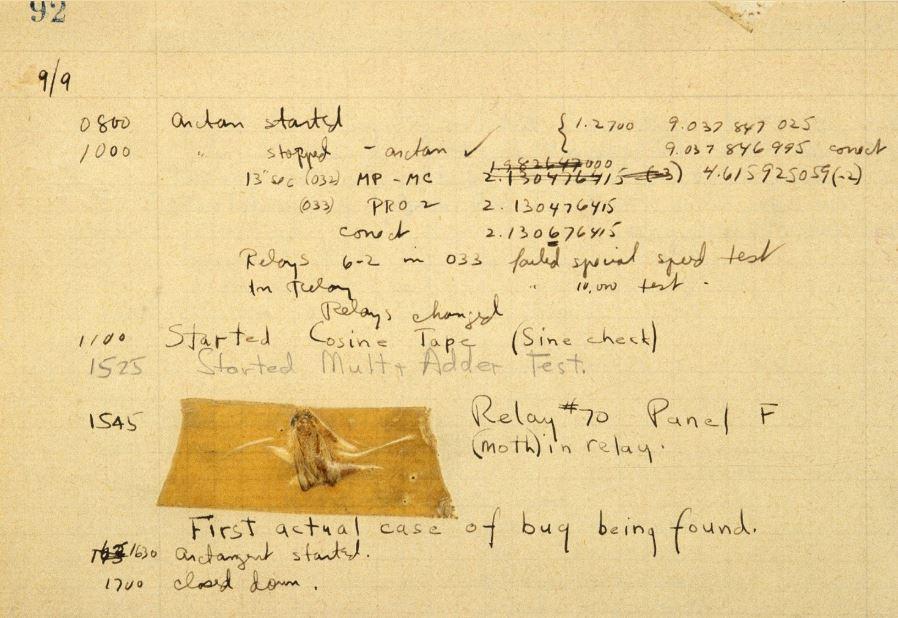 92
9/9
0800 arctan started { 1.2700 9.037 847 025
1000 " stopped - arctan ✓ 9.037 846 995 conect
13"sec (032) MP - MC 1.982647000 2.130476415 (-3) 4.615925059(-2)
(033) PRO 2 2.130476415
conect 2.130676415
Relays 6-2 in 033 failed special speed test
In Relay " 10,000 test.
Relays changed
1100 Started Cosine Tape (Sine check)
1525 Started Mult + Adder Test.
1545 Relay #70 Panel F
(moth) in relay.
First actual case of bug being found.
1630 arctangent started.
1700 closed down.